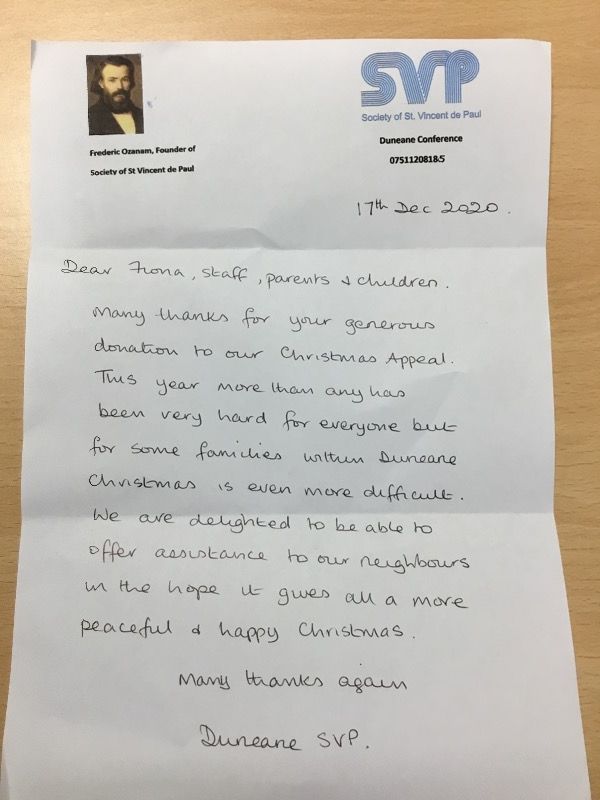 SVP
Society of St. Vincent de Paul
Duneane Conference
07511208185
Frederic Ozanam, Founder of
Society of St Vincent de Paul
17th Dec 2020.
Dear Fiona, staff, parents & children.
Many thanks for your generous
donation to our Christmas Appeal.
This year more than any has
been very hard for everyone but
for some families within Duneane
Christmas is even more difficult.
We are delighted to be able to
offer assistance to our neighbours
in the hope it gives all a more
peaceful & happy Christmas.
Many thanks again
Duneane SVP.